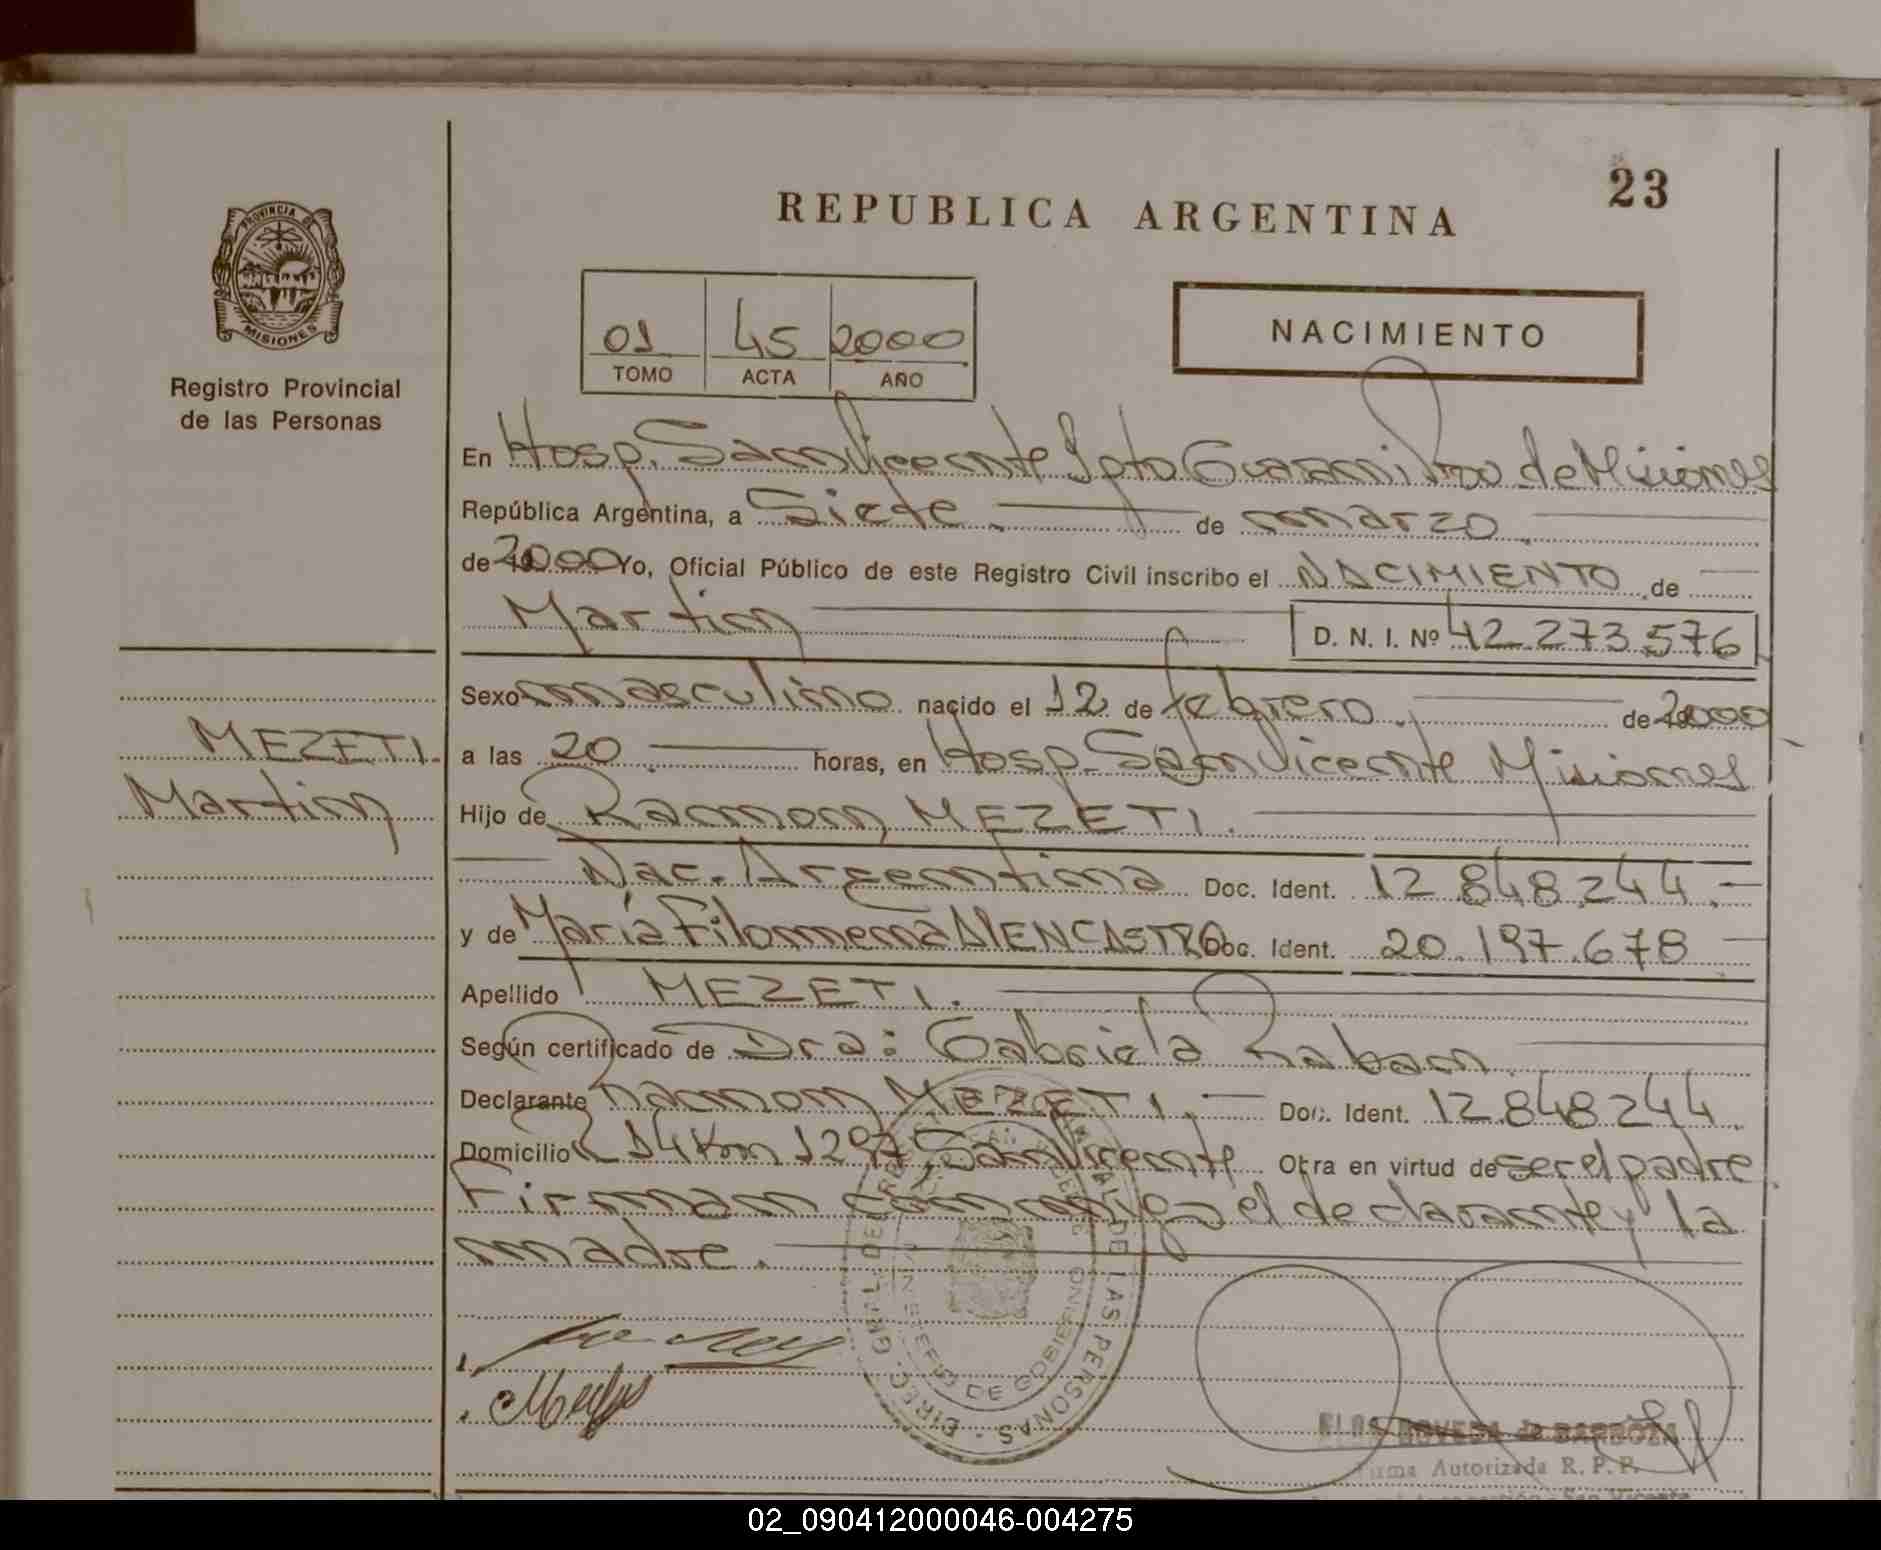 23
REPUBLICA ARGENTINA
PROVINCIA DE
MISIONES
Registro Provincial
de las Personas
01 45 2000
TOMO ACTA AÑO
NACIMIENTO
En Hosp. San Vicente Dpto Guarani Prov de Misiones
República Argentina, a Siete de marzo
de 2000 Yo, Oficial Público de este Registro Civil inscribo el NACIMIENTO de
Martin D. N. I. Nº 42.273.576
Sexo masculino nacido el 12 de febrero de 2000
MEZETI
Martin
a las 20 horas, en Hosp. San Vicente Misiones
Hijo de Ramon MEZETI.
Nac. Argentina Doc. Ident. 12.848.244.-
y de María Filomena ALENCASTRO Doc. Ident. 20.197.678
Apellido MEZETI.
Según certificado de Dra: Gabriela Raban
Declarante Ramon MEZETI. Doc. Ident. 12.848.244.
Domicilio R 14 Km 1297, San Vicente Otra en virtud de ser el padre.
Firman conmigo el declarante y la
madre.
DIREC. GRAL. DEL REGISTRO PROVINCIAL DE LAS PERSONAS
MINISTERIO DE GOBIERNO
BOVEDA de BARBOZA
Firma Autorizada R. P. P.
San Vicente
02_090412000046-004275